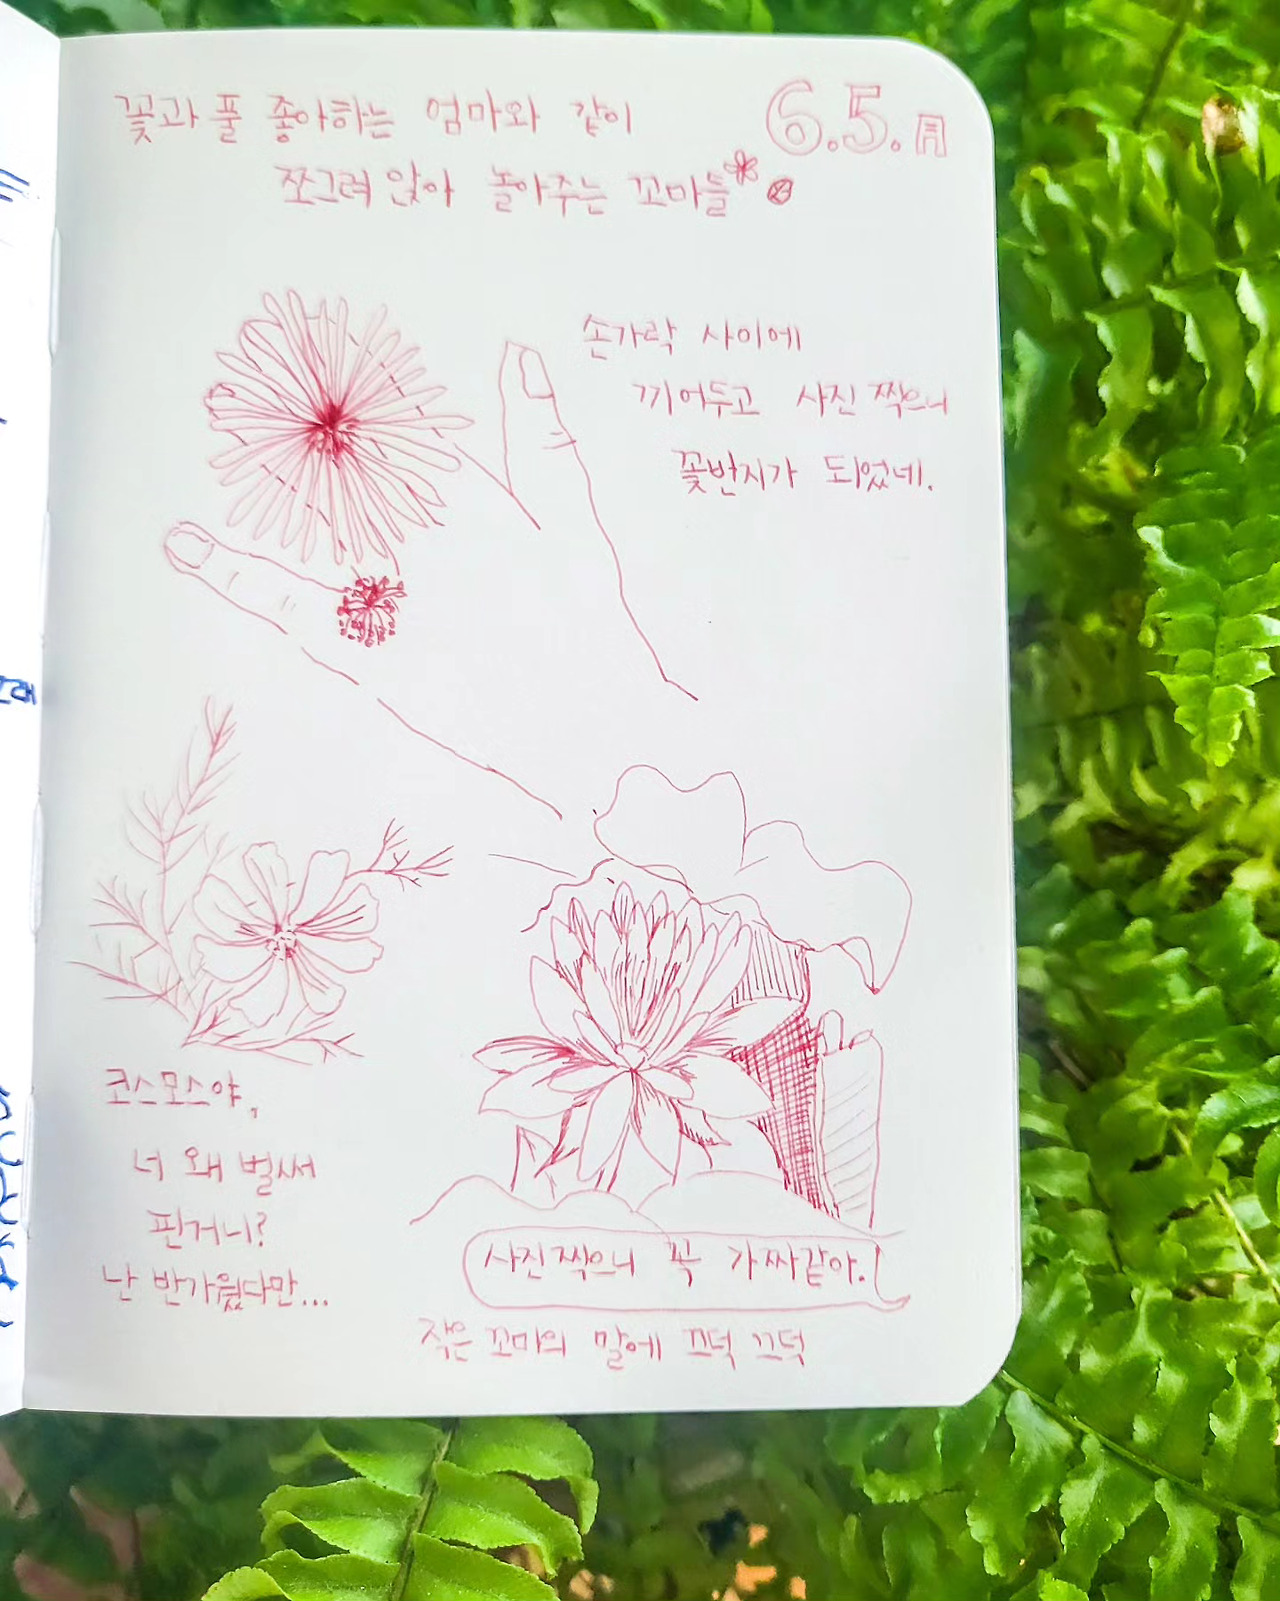 6.5.月
꽃과 풀 좋아하는 엄마와 같이
쪼그려 앉아 놀아주는 꼬마들
손가락 사이에
끼어두고 사진 찍으니
꽃반지가 되었네.
코스모스야,
너 왜 벌써
핀거니?
난 반가웠다만...
사진찍으니 꼭 가짜같아.
작은 꼬마의 말에 끄덕 끄덕